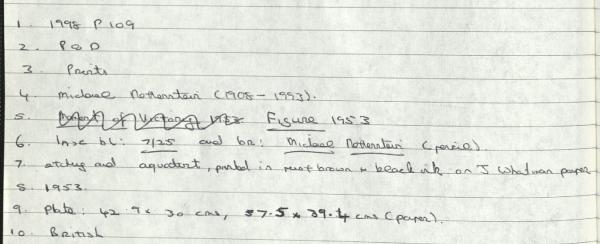 1. 1998 P 109
2. P & D
3. Prints
4. Michael Rothenstein (1908 - 1993).
5. Figure 1953
6. Insc bl: 7/25 and br: Michael Rothenstein (pencil).
7. etching and aquatint, printed in rust brown + black ink on J Whatman paper
8. 1953.
9. Plate: 42.9 x 30 cms, 57.5 x 39.4 cms (paper).
10. British